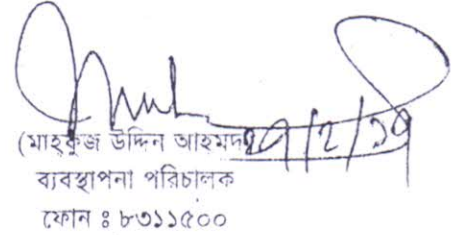 (মাহ্ফুজ উদ্দিন আহমদ)
ব্যবস্থাপনা পরিচালক
ফোন ঃ ৮৩১১৫০০